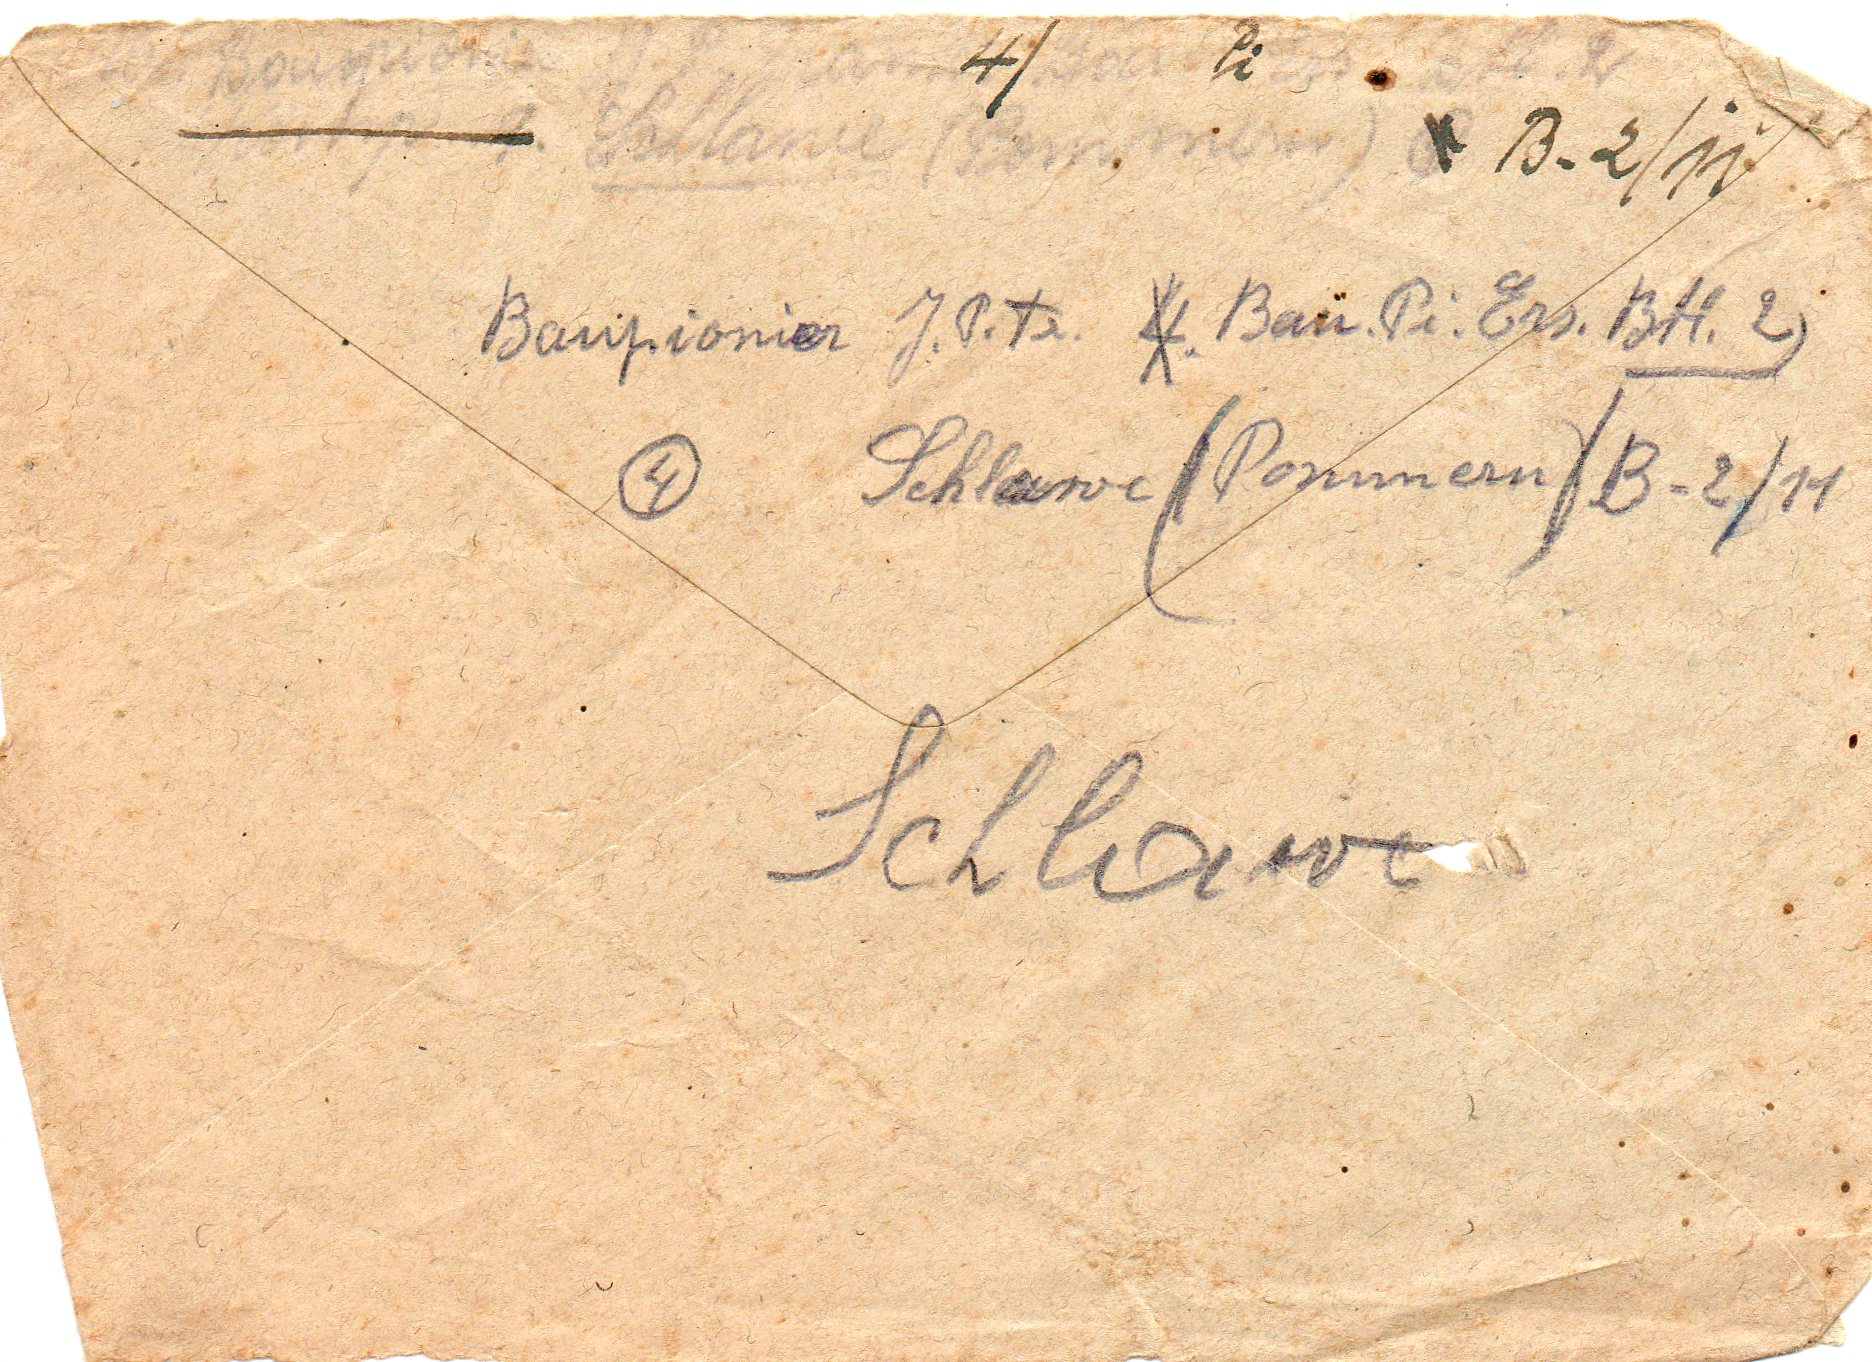 Baupionier 4/ Pi Btl. 2
Schlawe (Pommern) B-2/11
Baupionier J.P. 4. Bau. Pi. Ers. Btl. 2
4 Schlawe (Pommern) B-2/11
Schlawe